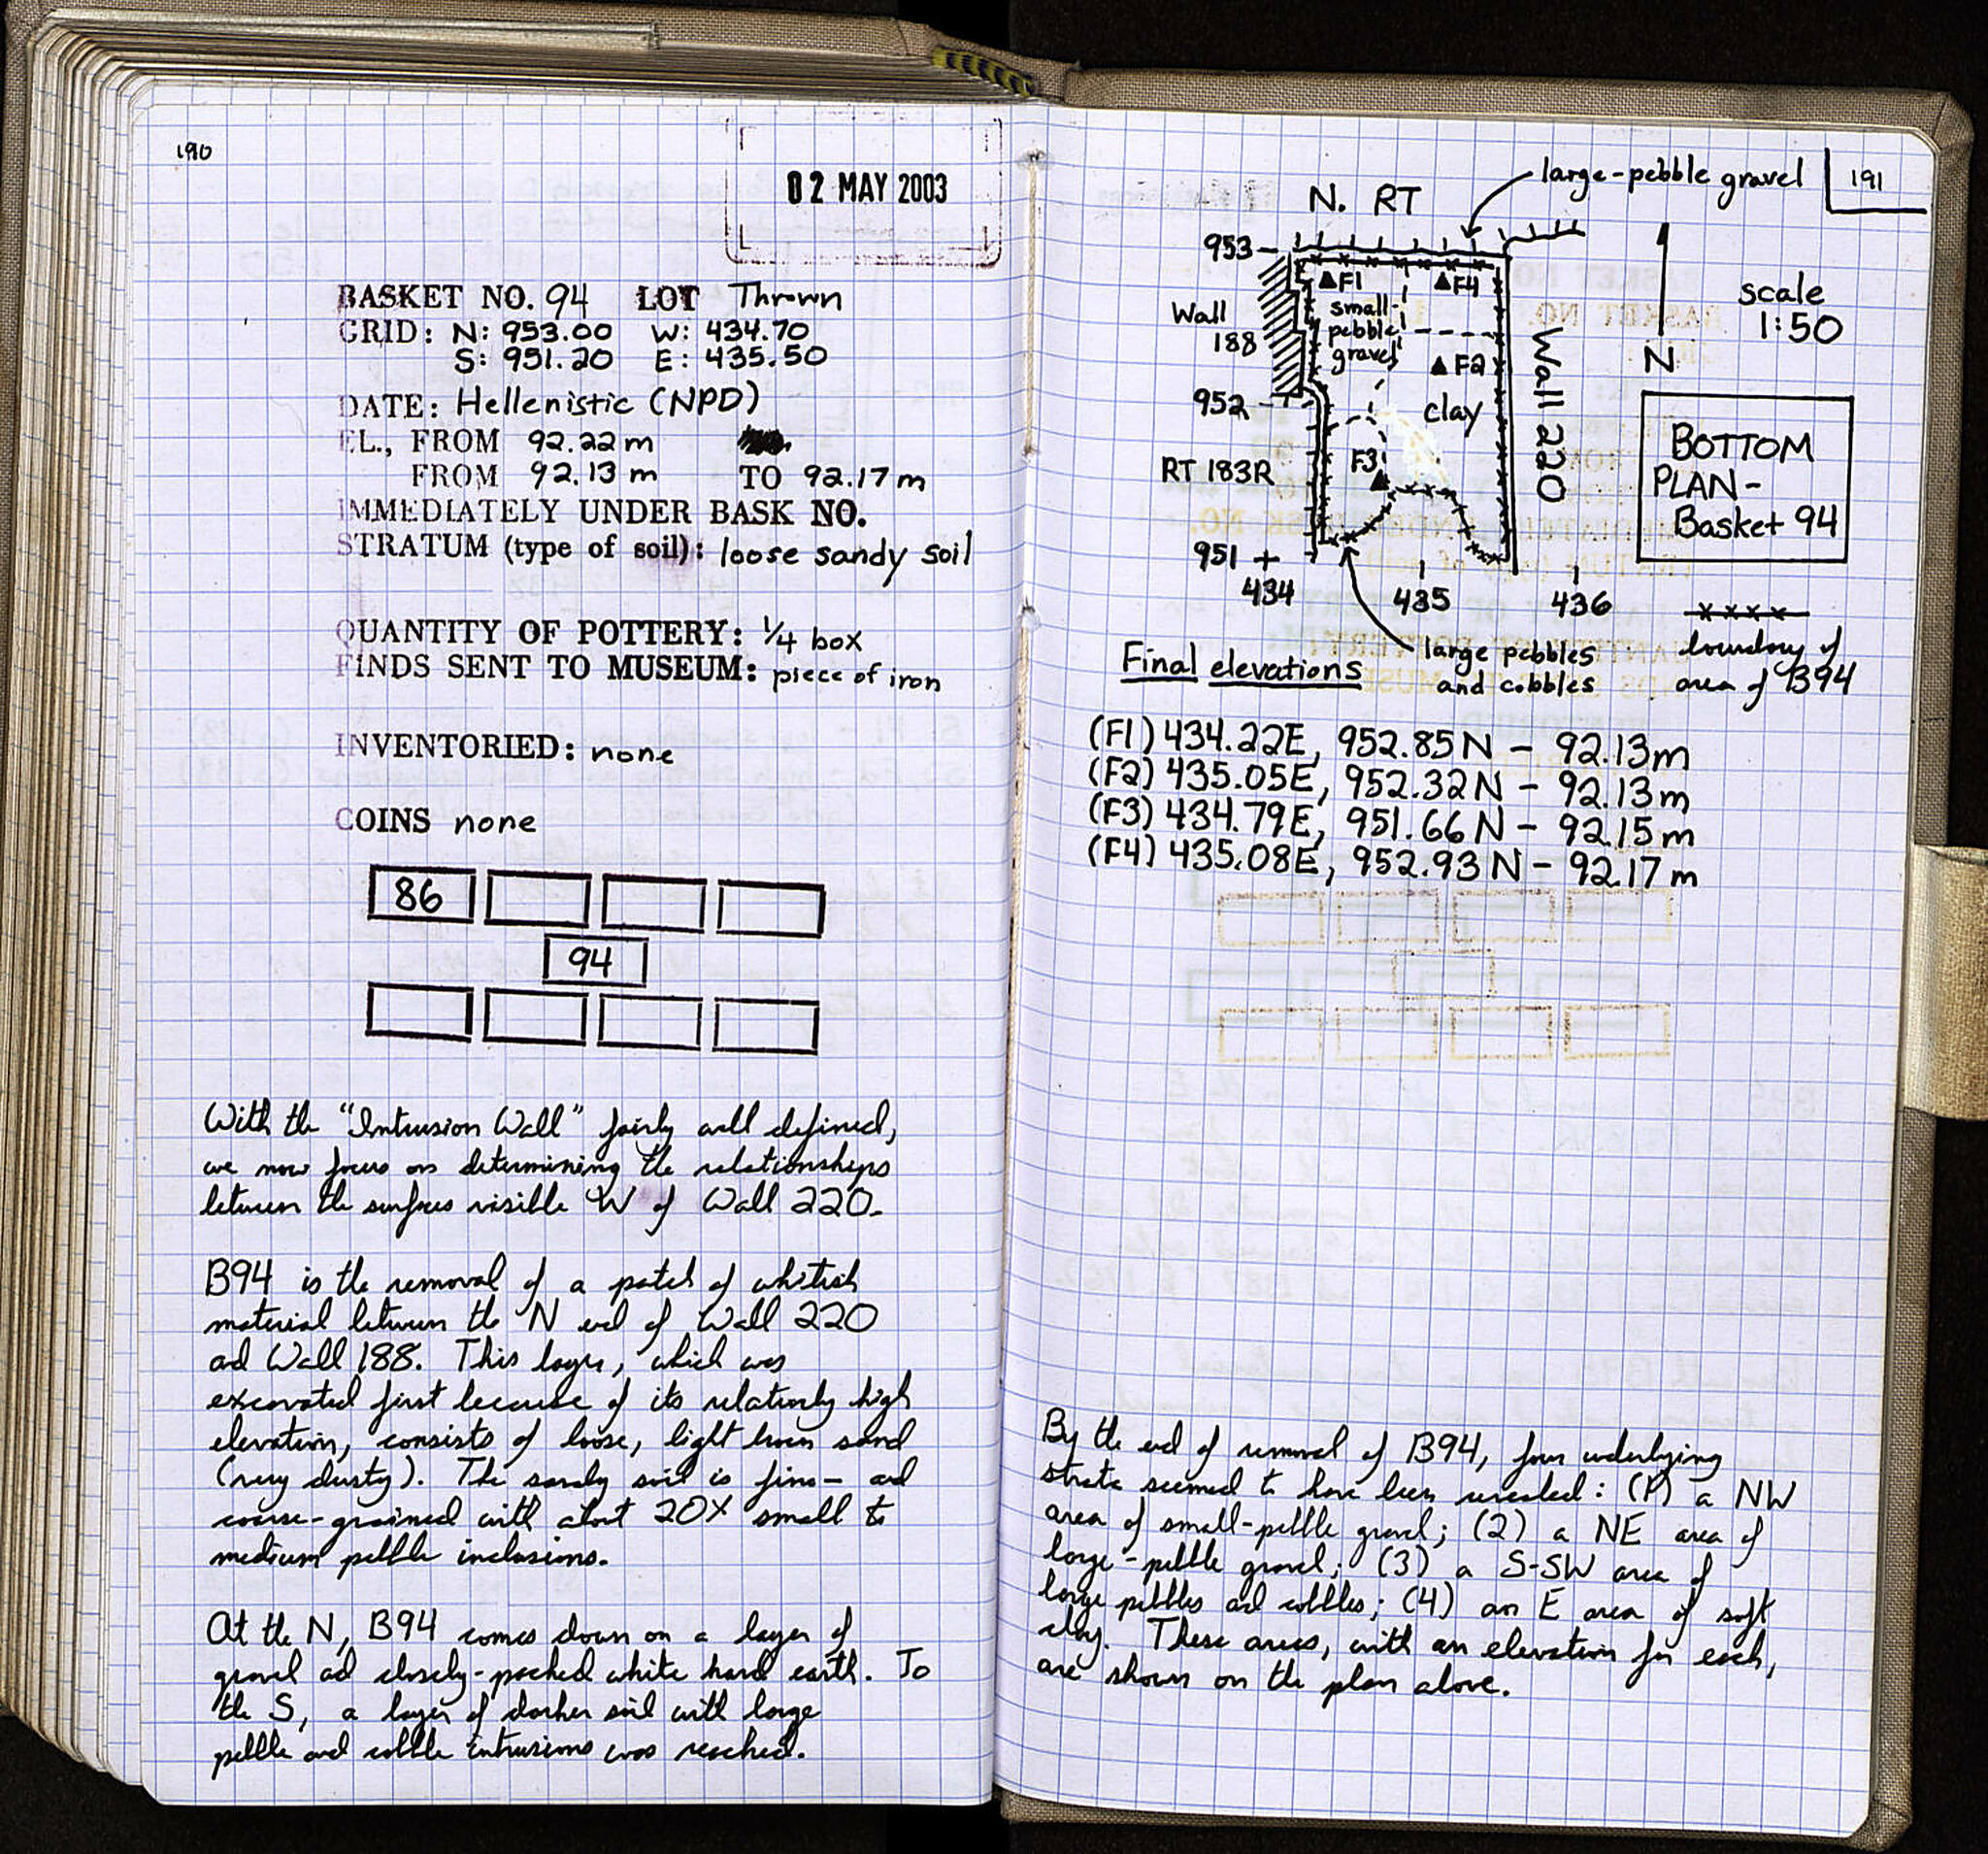 190
02 MAY 2003
BASKET NO. 94 LOT Thrown
GRID: N: 953.00 W: 434.70
S: 951.20 E: 435.50
DATE: Hellenistic (NPD)
EL., FROM 92.22 m
FROM 92.13 m TO 92.17 m
IMMEDIATELY UNDER BASK NO.
STRATUM (type of soil): loose sandy soil
QUANTITY OF POTTERY: 1/4 box
FINDS SENT TO MUSEUM: piece of iron
INVENTORIED: none
COINS none
86
94
With the "Intrusion Wall" fairly well defined,
we now focus on determining the relationships
between the surfaces visible W of Wall 220.
B94 is the removal of a patch of whitish
material between the N end of Wall 220
and Wall 188. This layer, which was
excavated first because of its relatively high
elevation, consists of loose, light brown sand
(very dusty). The sandy soil is fine- and
coarse-grained with about 20% small to
medium pebble inclusions.
At the N, B94 comes down on a layer of
gravel and closely-packed white hard earth. To
the S, a layer of darker soil with large
pebble and cobble intrusions was reached.
191
large-pebble gravel
N. RT
953
F1
F4
Wall
188
small-
pebble
gravel
F2
Wall 220
N
scale
1:50
952
clay
RT 183R
F3
BOTTOM
PLAN-
Basket 94
951
434
435
436
large pebbles
and cobbles
boundary of
area of B94
Final elevations
(F1) 434.22E, 952.85N - 92.13m
(F2) 435.05E, 952.32N - 92.13m
(F3) 434.79E, 951.66N - 92.15m
(F4) 435.08E, 952.93N - 92.17m
By the end of removal of B94, four underlying
strata seemed to have been revealed: (1) a NW
area of small-pebble gravel; (2) a NE area of
large-pebble gravel; (3) a S-SW area of
large pebbles and cobbles; (4) an E area of soft
clay. These areas, with an elevation for each,
are shown on the plan above.